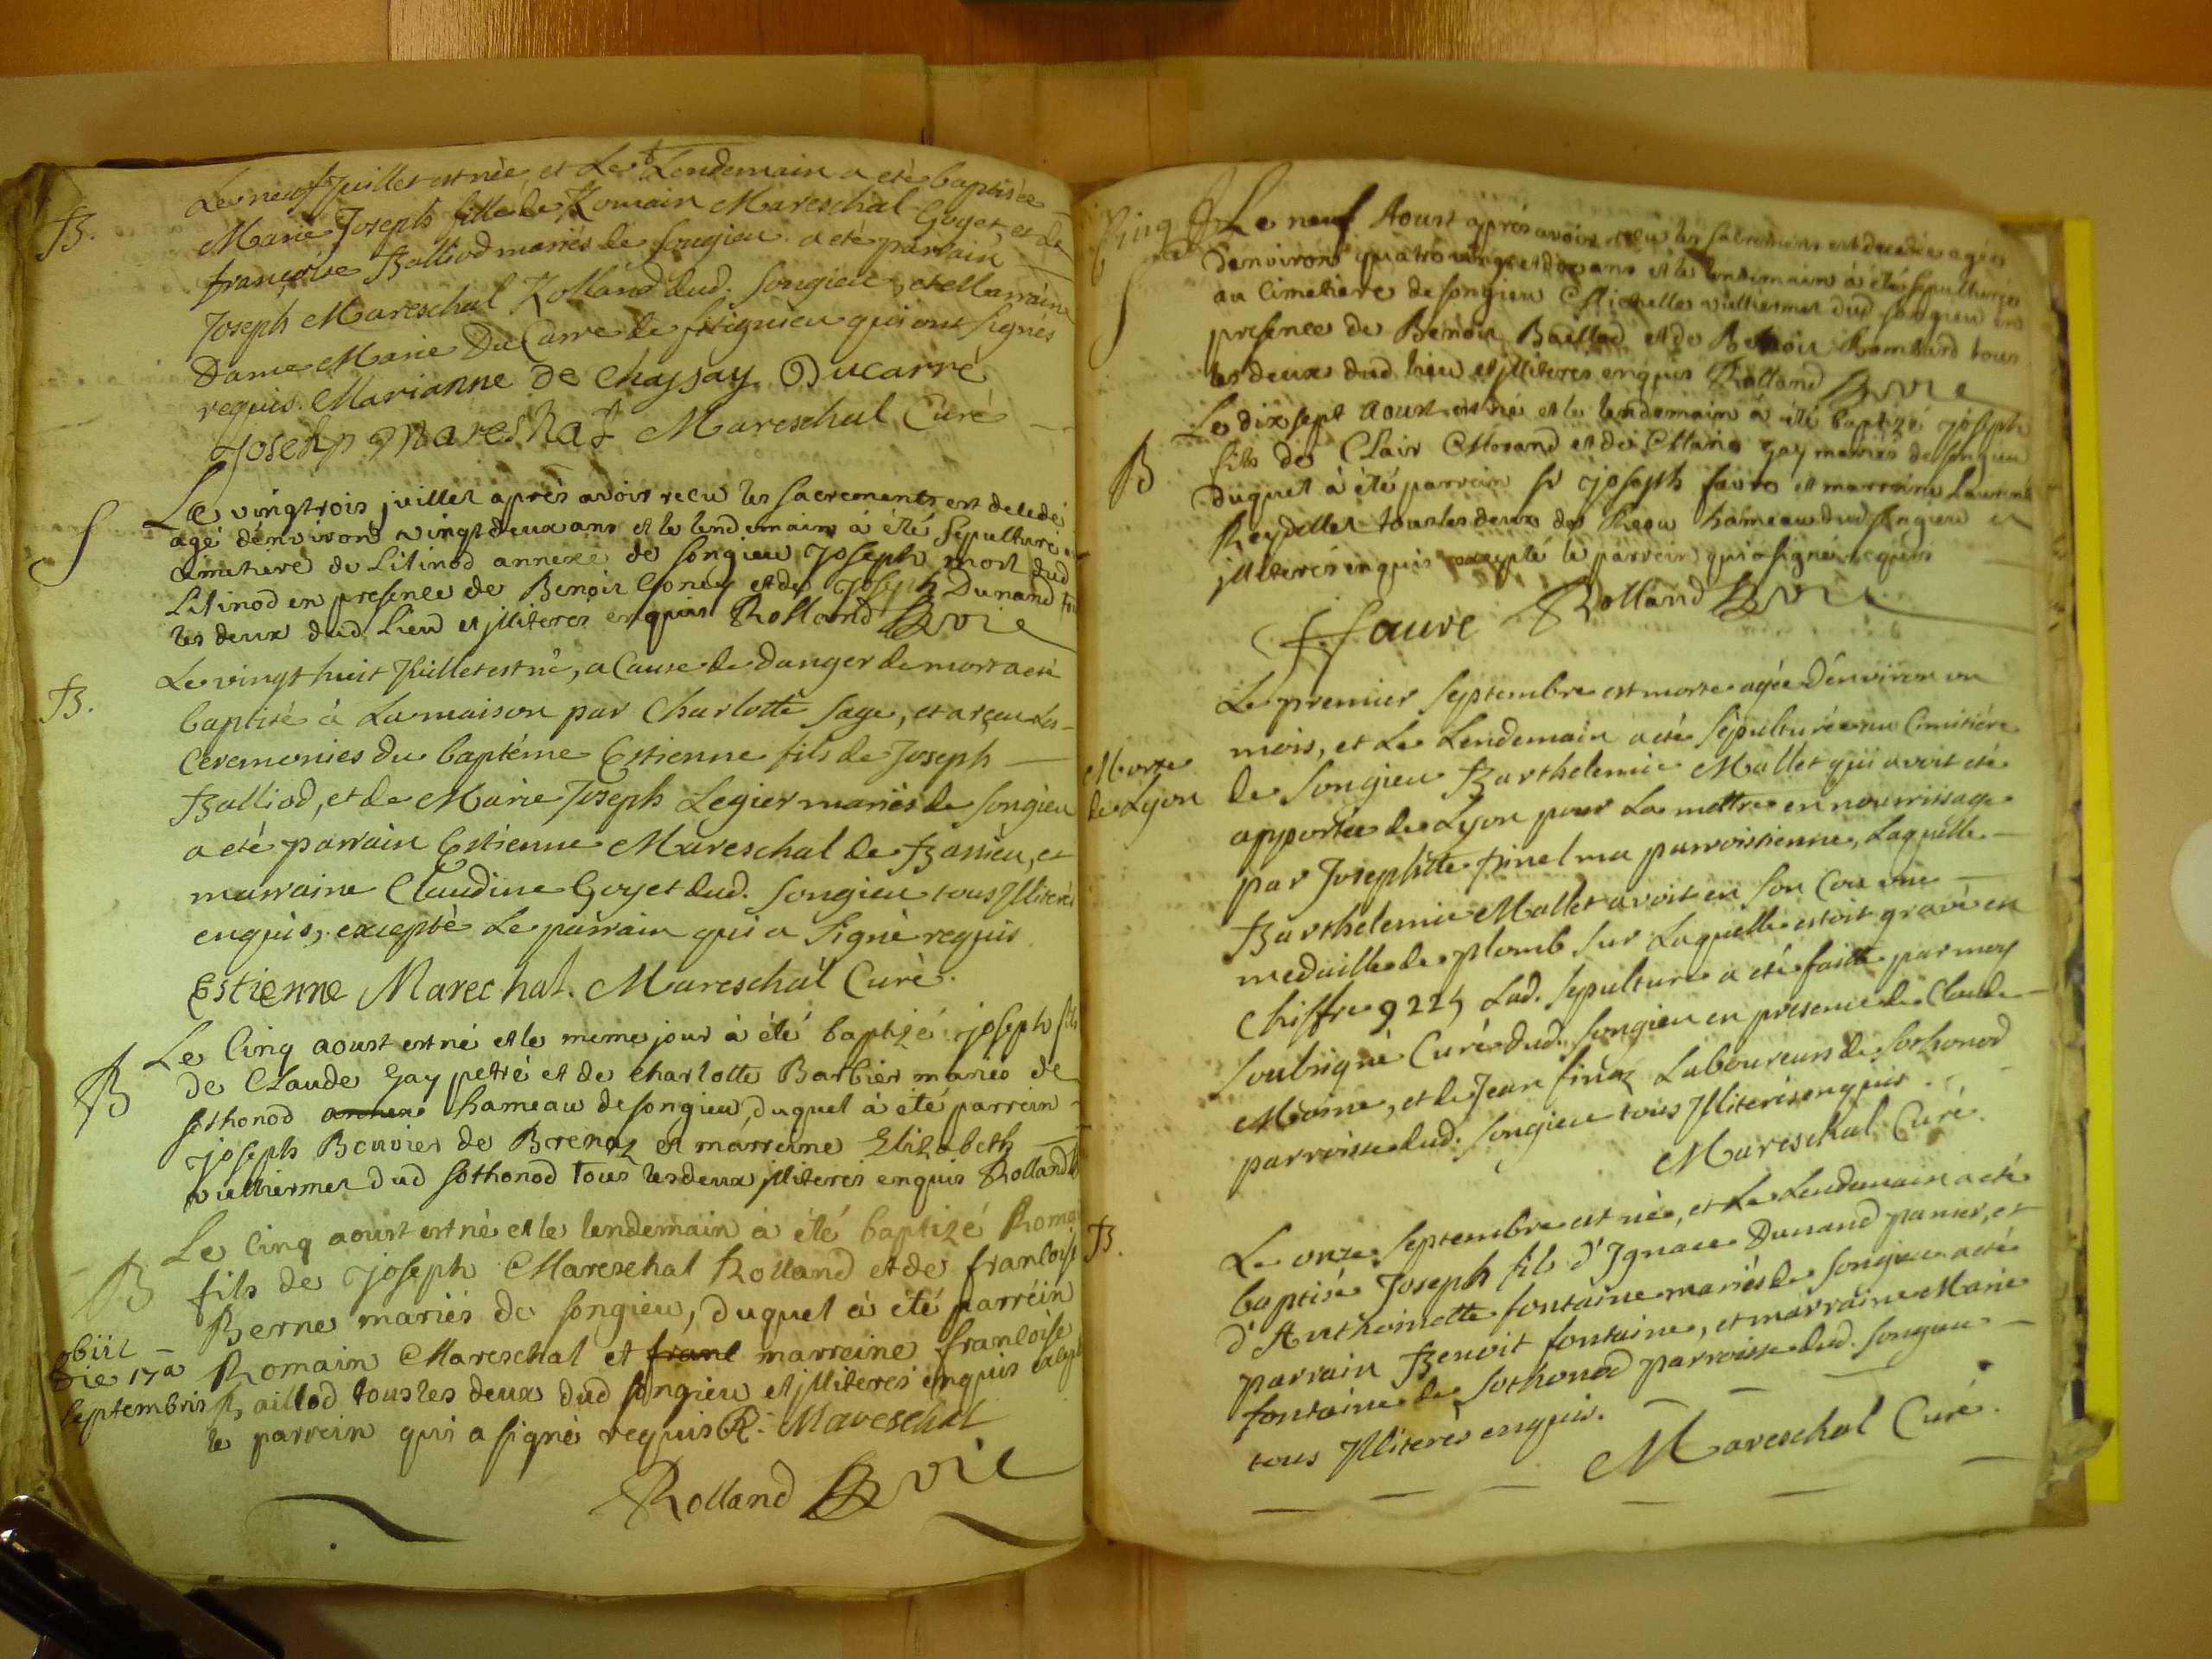 B.
Le neuf Juillet est née, et Le Lendemain a eté baptisée
Marie Joseph fille de Romain Mareschal Goyet, et de
françoise Balliod mariés de Songieu a eté parrain
Joseph Mareschal Rolland dud. Songieu, et Marraine
Dame Marie Du Carre de qui ont signés
requis. Marianne De Chaysay Ducarré
Joseph Mareshal Mareschal Curé
S
Le vingtrois juillet aprés avoir recu les sacrements est decedé
agé dénviron vingtdeux ans et le lendemain à été sepulturé
cimetiere de Litinod annexe de songieu Joseph mort dud
Litinod en presence de Benoit Goney et de Joseph Dunand
les deux dud Lieu et jlliterés enquis Rolland vic
B.
Le vingt huit Juillet est né, a Cause de danger de mort a eté
baptisé à La maison par Charlotte Sage, et a reçeu Les
Ceremonies du baptéme Estienne fils de Joseph
Balliod, et de Marie Joseph Legier mariés de Songieu
a eté parrain Estienne Mareschal de Bassieu, et
marraine Claudine Goyet dud. Songieu tous Jlliterés
enquis, excepté Le parrain qui a Signé requis
Estienne Marechal. Mareschal Curé.
B
Le Cinq aoust est né et le meme jour à été baptizé joseph fils
de Claude Gay petré et de charlotte Barbier mariés de
sothonod annexe hameau de songieu, duquel à eté parrein
joseph Bouvier de Brenaz et marreine Elizabeth
vulliermet dud sothonod tous les deux jlliterés enquis Rolland
B
Le Cinq aoust est né et le lendemain à été baptizé
fils de Joseph Mareschal Rolland et de francoise
Berne mariés de songieu, duquel à été parréin
Romain Mareschal et franc marreine francoise
Baillod tous les deux dud songieu et jlliterés enquis
le parrein qui a signé requis R. Mareschal
Rolland vic
obiit
die 17a
septembris
S Le neuf Aoust aprés avoir recu les sacremens est decedée agée
dénviron quatre vingt et ans et le lendemain à été sepulturée
au Cimetiere de songieu Michelle vulliermet dud songieu en
presence de Benoit Baillod et de Benoit tous
les deux dud lieu et jlliterés enquis Rolland vic
B
Le dix sept aoust est né et le lendemain à été baptizé joseph
fils de Clair Morand et de Marie Gay mariés de songieu
duquel à été parrein sr joseph favre et marreine Laurence
Reydellet tous les deux de hameau dud songieu et
jlliterés enquis excepté le parrein qui a signé requis
J. faure Rolland vic
Morte
de Lyon
Le premier septembre est morte agée dénviron un
mois, et Le Lendemain a eté sépulturée au Cimitiére
de Songieu Barthelemie Mallet qui avoit eté
apportée de Lyon pour La mettre en nourrissage
par Josephtte finel ma parroissienne, Laquelle
Barthelemie Mallet avoit en son Cou une
medaille de plomb sur Laquelle estoit gravé en
Chiffre 9225 Lad. sepulture a eté faitte par moy
soubsigné Curé dud. Songieu en presence de Claude
Moine, et de Jean finaz Laboureurs de Sothonod
parroisse dud. Songieu tous Jlliterés enquis
Mareschal Curé.
B.
Le onze Septembre est née, et Le Lendemain a eté
baptisé Joseph fils d'Ignace Dunand panier, et
d'Anthoinette fontaine mariés de Songieu a eté
parrain Benoit fontaine, et marraine Marie
fontaine de Sothonod parroisse dud. Songieu
tous Jlliterés enquis.
Mareschal Curé.